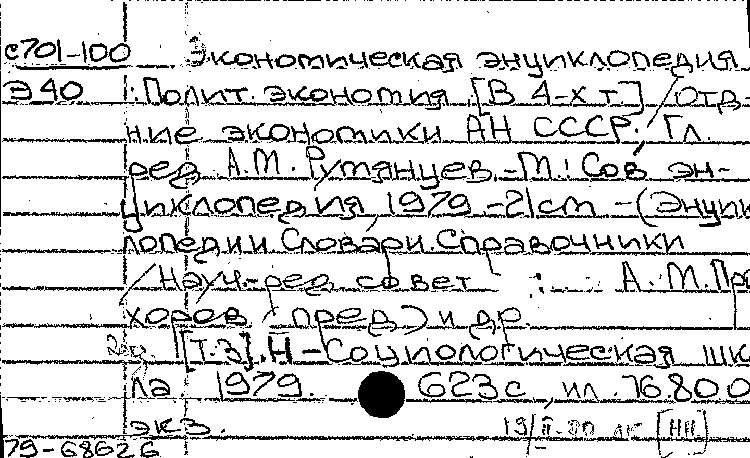 с701-100 Экономическая энциклопедия
Э40 : Полит. экономия. [В 4-х т.] / Отд-
ние экономики АН СССР; Гл.
ред. А.М. Румянцев. - М.: Сов. эн-
циклопедия, 1979. - 21 см. - (Энцик
лопедии. Словари. Справочники
/ Науч.-ред. совет : А.М. Про
хоров (пред.) и др.
[Т.3]. Н - Социологическая шко
ла. 1979. 623 с., ил. 76.800
экз. 19/II-80 лк [НН]
79-68626